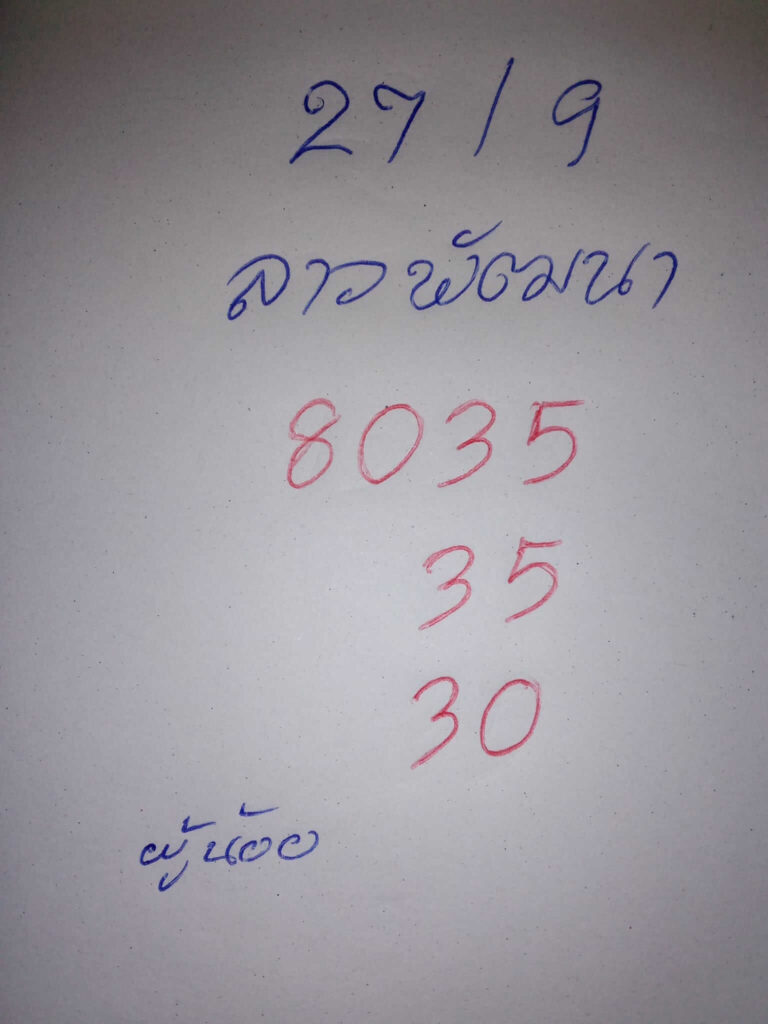 27/9
ลาวพัฒนา
8035
35
30
ผู้น้อย